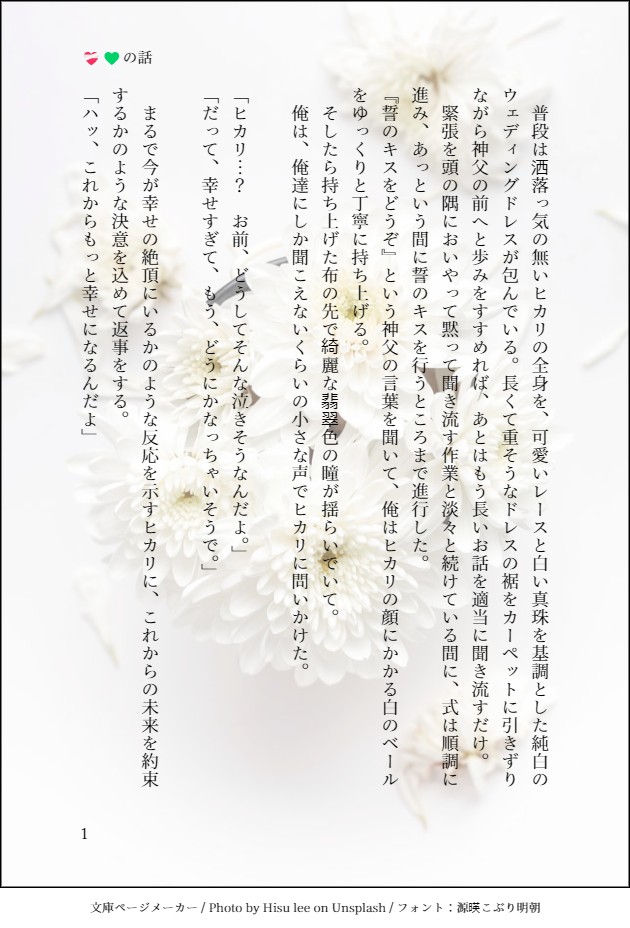 ❤️‍🩹💚の話
　普段は洒落っ気の無いヒカリの全身を、可愛いレースと白い真珠を基調とした純白の
ウェディングドレスが包んでいる。長くて重そうなドレスの裾をカーペットに引きずり
ながら神父の前へと歩みをすすめれば、あとはもう長いお話を適当に聞き流すだけ。
　緊張を頭の隅においやって黙って聞き流す作業と淡々と続けている間に、式は順調に
進み、あっという間に誓のキスを行うところまで進行した。
『誓のキスをどうぞ』という神父の言葉を聞いて、俺はヒカリの顔にかかる白のベール
をゆっくりと丁寧に持ち上げる。
　そしたら持ち上げた布の先で綺麗な翡翠色の瞳が揺らいでいて。
　俺は、俺達にしか聞こえないくらいの小さな声でヒカリに問いかけた。
「ヒカリ…？　お前、どうしてそんな泣きそうなんだよ。」
「だって、幸せすぎて、もう、どうにかなっちゃいそうで。」
　まるで今が幸せの絶頂にいるかのような反応を示すヒカリに、これからの未来を約束
するかのような決意を込めて返事をする。
「ハッ、これからもっと幸せになるんだよ」
1
文庫ページメーカー / Photo by Hisu lee on Unsplash / フォント：源暎こぶり明朝